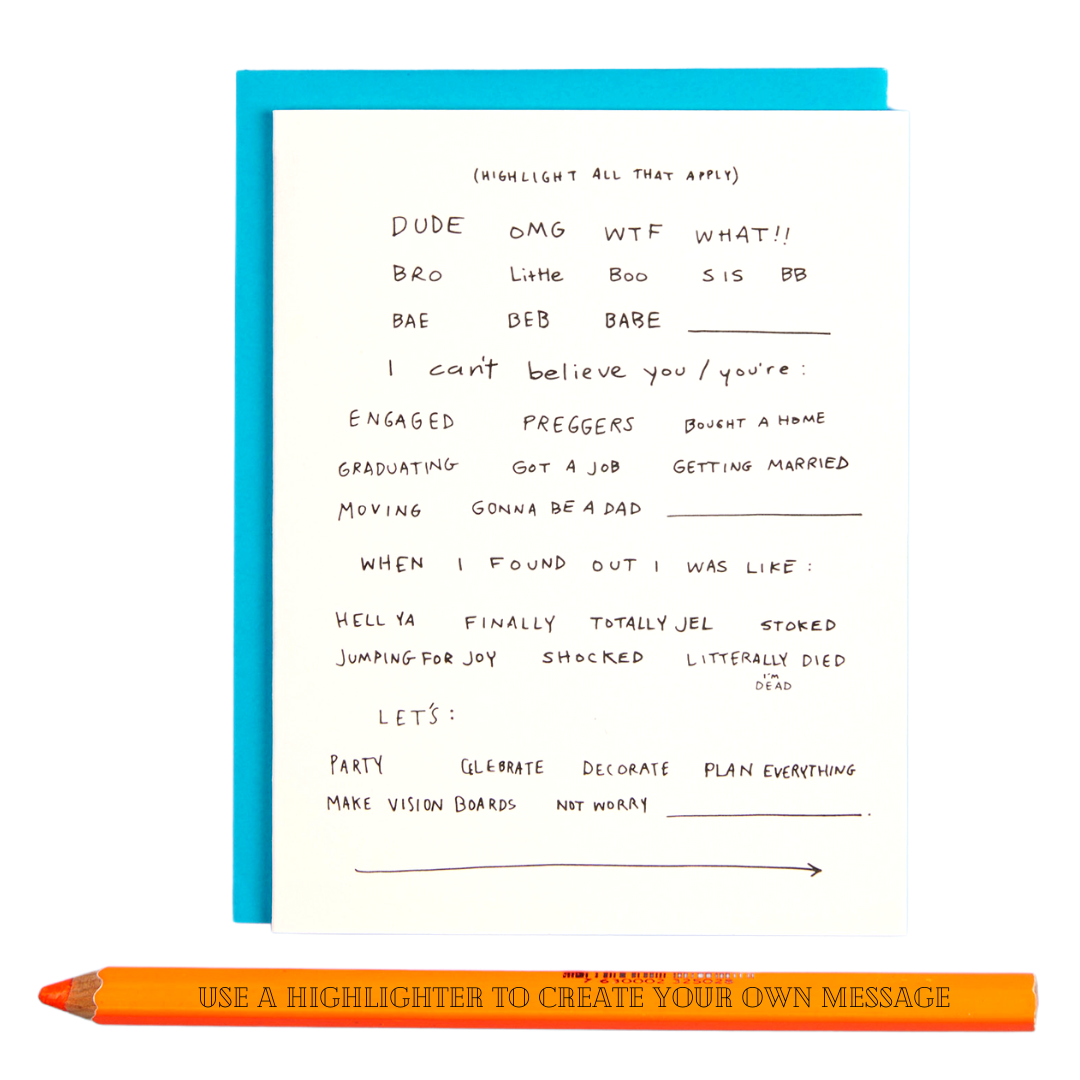 (HIGHLIGHT ALL THAT APPLY)
DUDE OMG WTF WHAT!!
BRO Little Boo SIS BB
BAE BEB BABE
I can't believe you / you're :
ENGAGED PREGGERS BOUGHT A HOME
GRADUATING GOT A JOB GETTING MARRIED
MOVING GONNA BE A DAD
WHEN I FOUND OUT I WAS LIKE :
HELL YA FINALLY TOTALLY JEL STOKED
JUMPING FOR JOY SHOCKED LITTERALLY DIED
I'M
DEAD
LET'S :
PARTY CELEBRATE DECORATE PLAN EVERYTHING
MAKE VISION BOARDS NOT WORRY .
7 610002 325025
USE A HIGHLIGHTER TO CREATE YOUR OWN MESSAGE